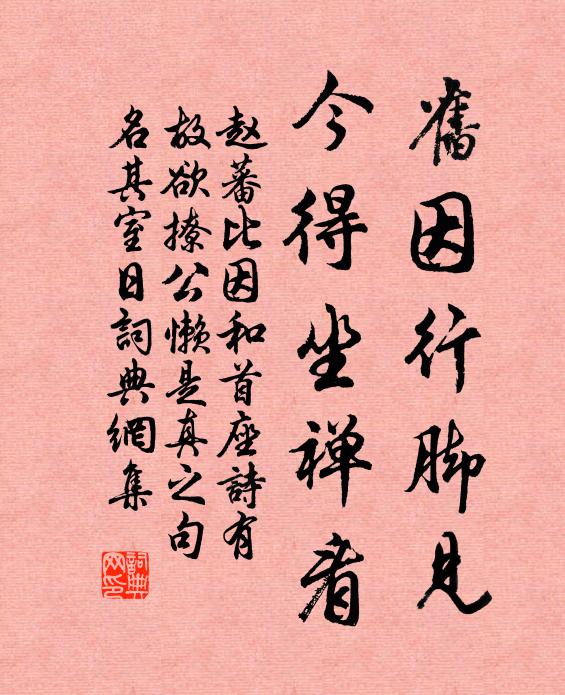 舊因行脚見
今得坐禅看
赵蕃比因和首座詩有
故欲撩公懒是真之句
名其室日詞典網集
詞典网印